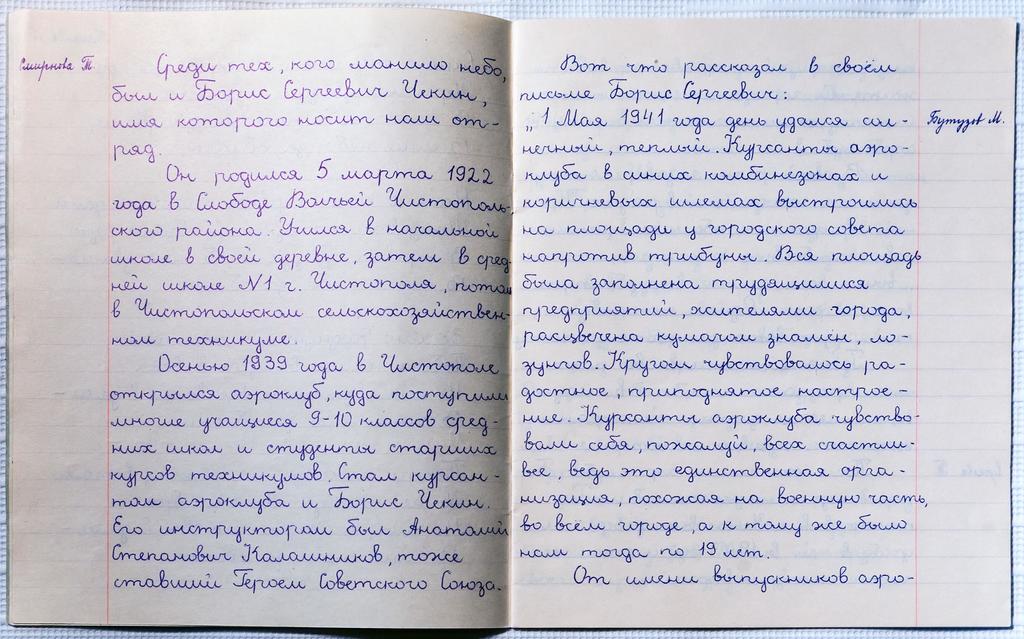 Смирнова Т.
Среди тех, кого манило небо,
был и Борис Сергеевич Чекин,
имя которого носит наш от-
ряд.
Он родился 5 марта 1922
года в Слободе Волчьей Чистополь-
ского района. Учился в начальной
школе в своей деревне, затем в сред-
ней школе N1 г. Чистополя, потом
в Чистопольском сельскохозяйствен-
ном техникуме.
Осенью 1939 года в Чистополе
открылся аэроклуб, куда поступили
многие учащиеся 9-10 классов сред-
них школ и студенты старших
курсов техникумов. Стал курсан-
том аэроклуба и Борис Чекин.
Его инструктором был Анатолий
Степанович Калашников, тоже
ставший Героем Советского Союза.
Вот что рассказал в своём
письме Борис Сергеевич:
„1 Мая 1941 года день удался сол-
нечный, теплый. Курсанты аэро-
клуба в синих комбинезонах и
коричневых шлемах выстроились
на площади у городского совета
напротив трибуны. Вся площадь
была заполнена трудящимися
предприятий, жителями города,
расцвечена кумачом знамён, ло-
зунгов. Кругом чувствовалось ра-
достное, приподнятое настрое-
ние. Курсанты аэроклуба чувство-
вали себя, пожалуй, всех счастли-
вее, ведь это единственная орга-
низация, похожая на военную часть,
во всём городе, а к тому же было
нам тогда по 19 лет.
От имени выпускников аэро-
Бутузов М.